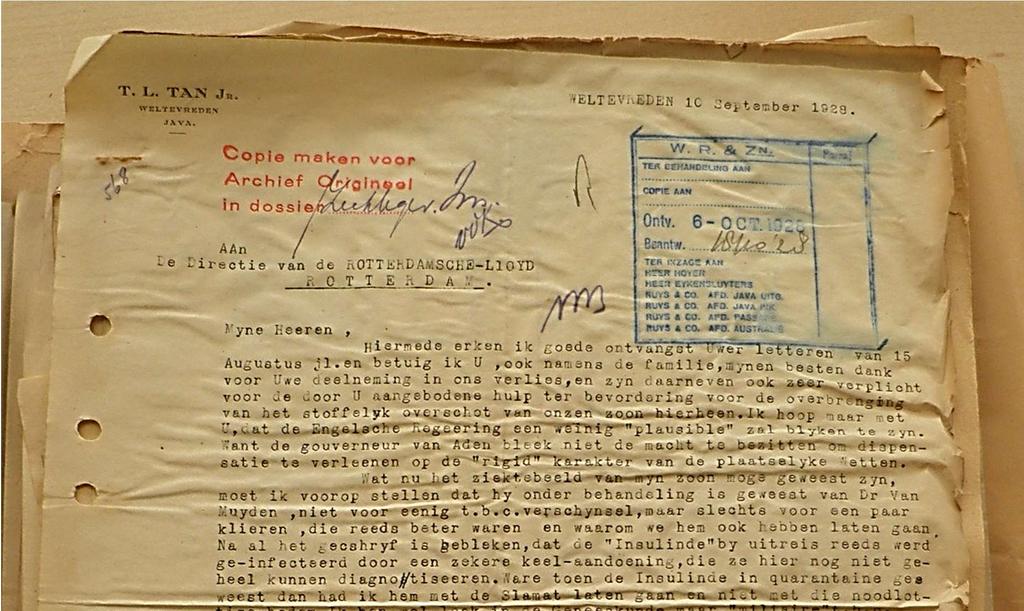 T. L. TAN Jr.
WELTEVREDEN
JAVA.
WELTEVREDEN 10 September 1928.
568
Copie maken voor
Archief Origineel
in dossier
W. R. & ZN.
Paraaf
TER BEHANDELING AAN
COPIE AAN
Ontv. 6-OCT.1928
Beantw. 18/10 '28
TER INZAGE AAN
HEER HOYER
HEER EYKENSLUYTERS
RUYS & CO. AFD. JAVA UITG.
RUYS & CO. AFD. JAVA INK
RUYS & CO. AFD. PASS
RUYS & CO. AFD. AUSTRALIE
AAn
De Directie van de ROTTERDAMSCHE-LlOYD
ROTTERDAM.
Myne Heeren ,
Hiermede erken ik goede ontvangst Uwer letteren van 15
Augustus jl.en betuig ik U ,ook namens de familie,mynen besten dank
voor Uwe deelneming in ons verlies,en zyn daarneven ook zeer verplicht
voor de door U aangebodene hulp ter bevordering voor de overbrenging
van het stoffelyk overschot van onzen zoon hierheen.Ik hoop maar met
U,dat de Engelsche Regeering een weinig "plausible" zal blyken te zyn.
Want de gouverneur van Aden bleek niet de macht te bezitten om dispen-
satie te verleenen op de "rigid" karakter van de plaatselyke Wetten.
Wat nu het ziektebeeld van myn zoon moge geweest zyn,
moet ik voorop stellen dat hy onder behandeling is geweest van Dr Van
Muyden ,niet voor eenig t.b.c.verschynsel,maar slechts voor een paar
klieren ,die reeds beter waren en waarom we hem ook hebben laten gaan
Na al het geschryf is gebleken,dat de "Insulinde"by uitreis reeds werd
ge-infecteerd door een zekere keel-aandoening,die ze hier nog niet ge-
heel kunnen diagnotiseeren.Ware toen de Insulinde in quarantaine gea
weest dan had ik hem met de Slamat laten gaan en niet met die noodlot-